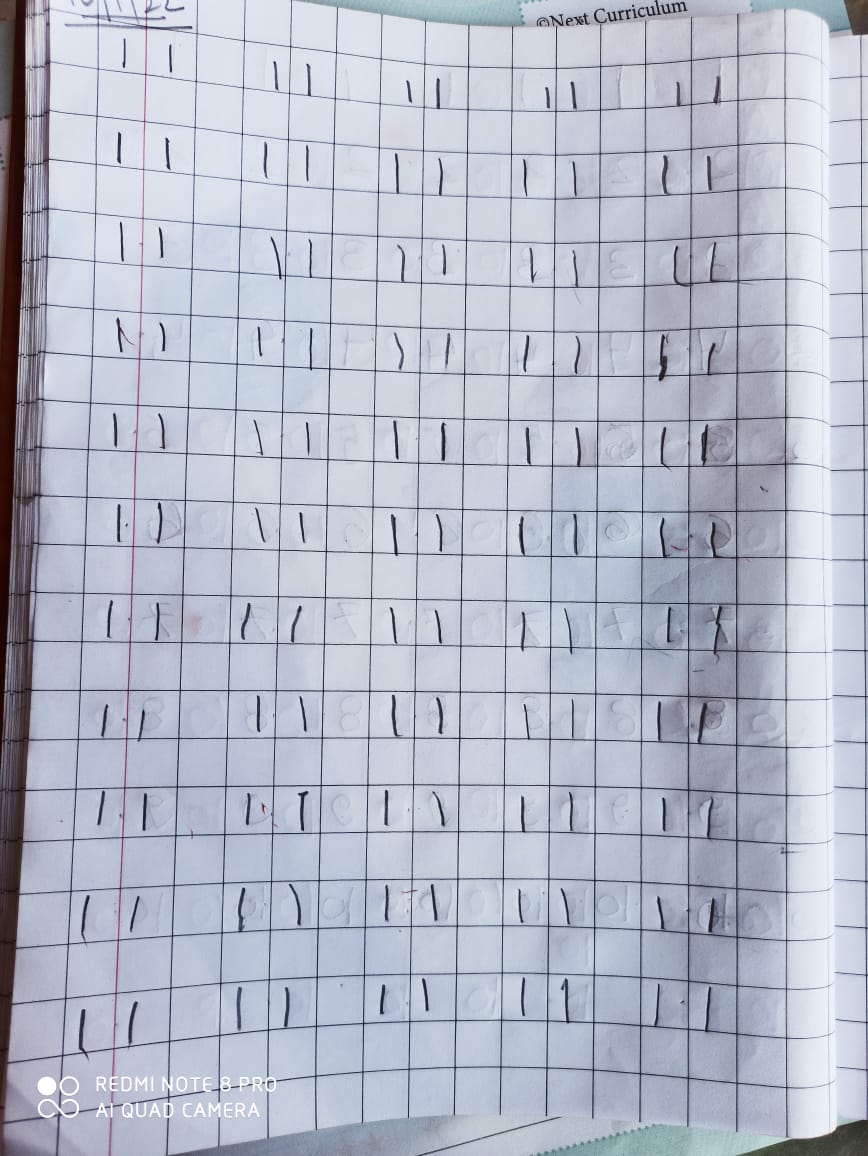 ©Next Curriculum
11 11 11 11 11
11 11 11 11 11
11 11 11 11 11
11 11 11 11 11
11 11 11 11 11
11 11 11 11 11
11 11 11 11 11
11 11 11 11 11
11 11 11 11 11
11 11 11 11 11
11 11 11 11 11
REDMI NOTE 8 PRO
AI QUAD CAMERA